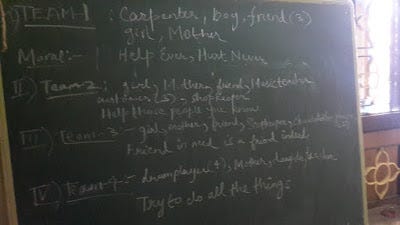 I) TEAM-1 : Carpenter, boy, friend (3)
girl, Mother
Moral:- Help Ever, Hurt Never
II) Team-2 : girl, Mother, friend, Musicteacher
customer (5) - shopkeeper
Help those people you know
III) Team-3 : girl, mother, friend,
Friend in need is a friend indeed
IV) Team-4 :- drumplayer (4), Mother,
Try to do all the things